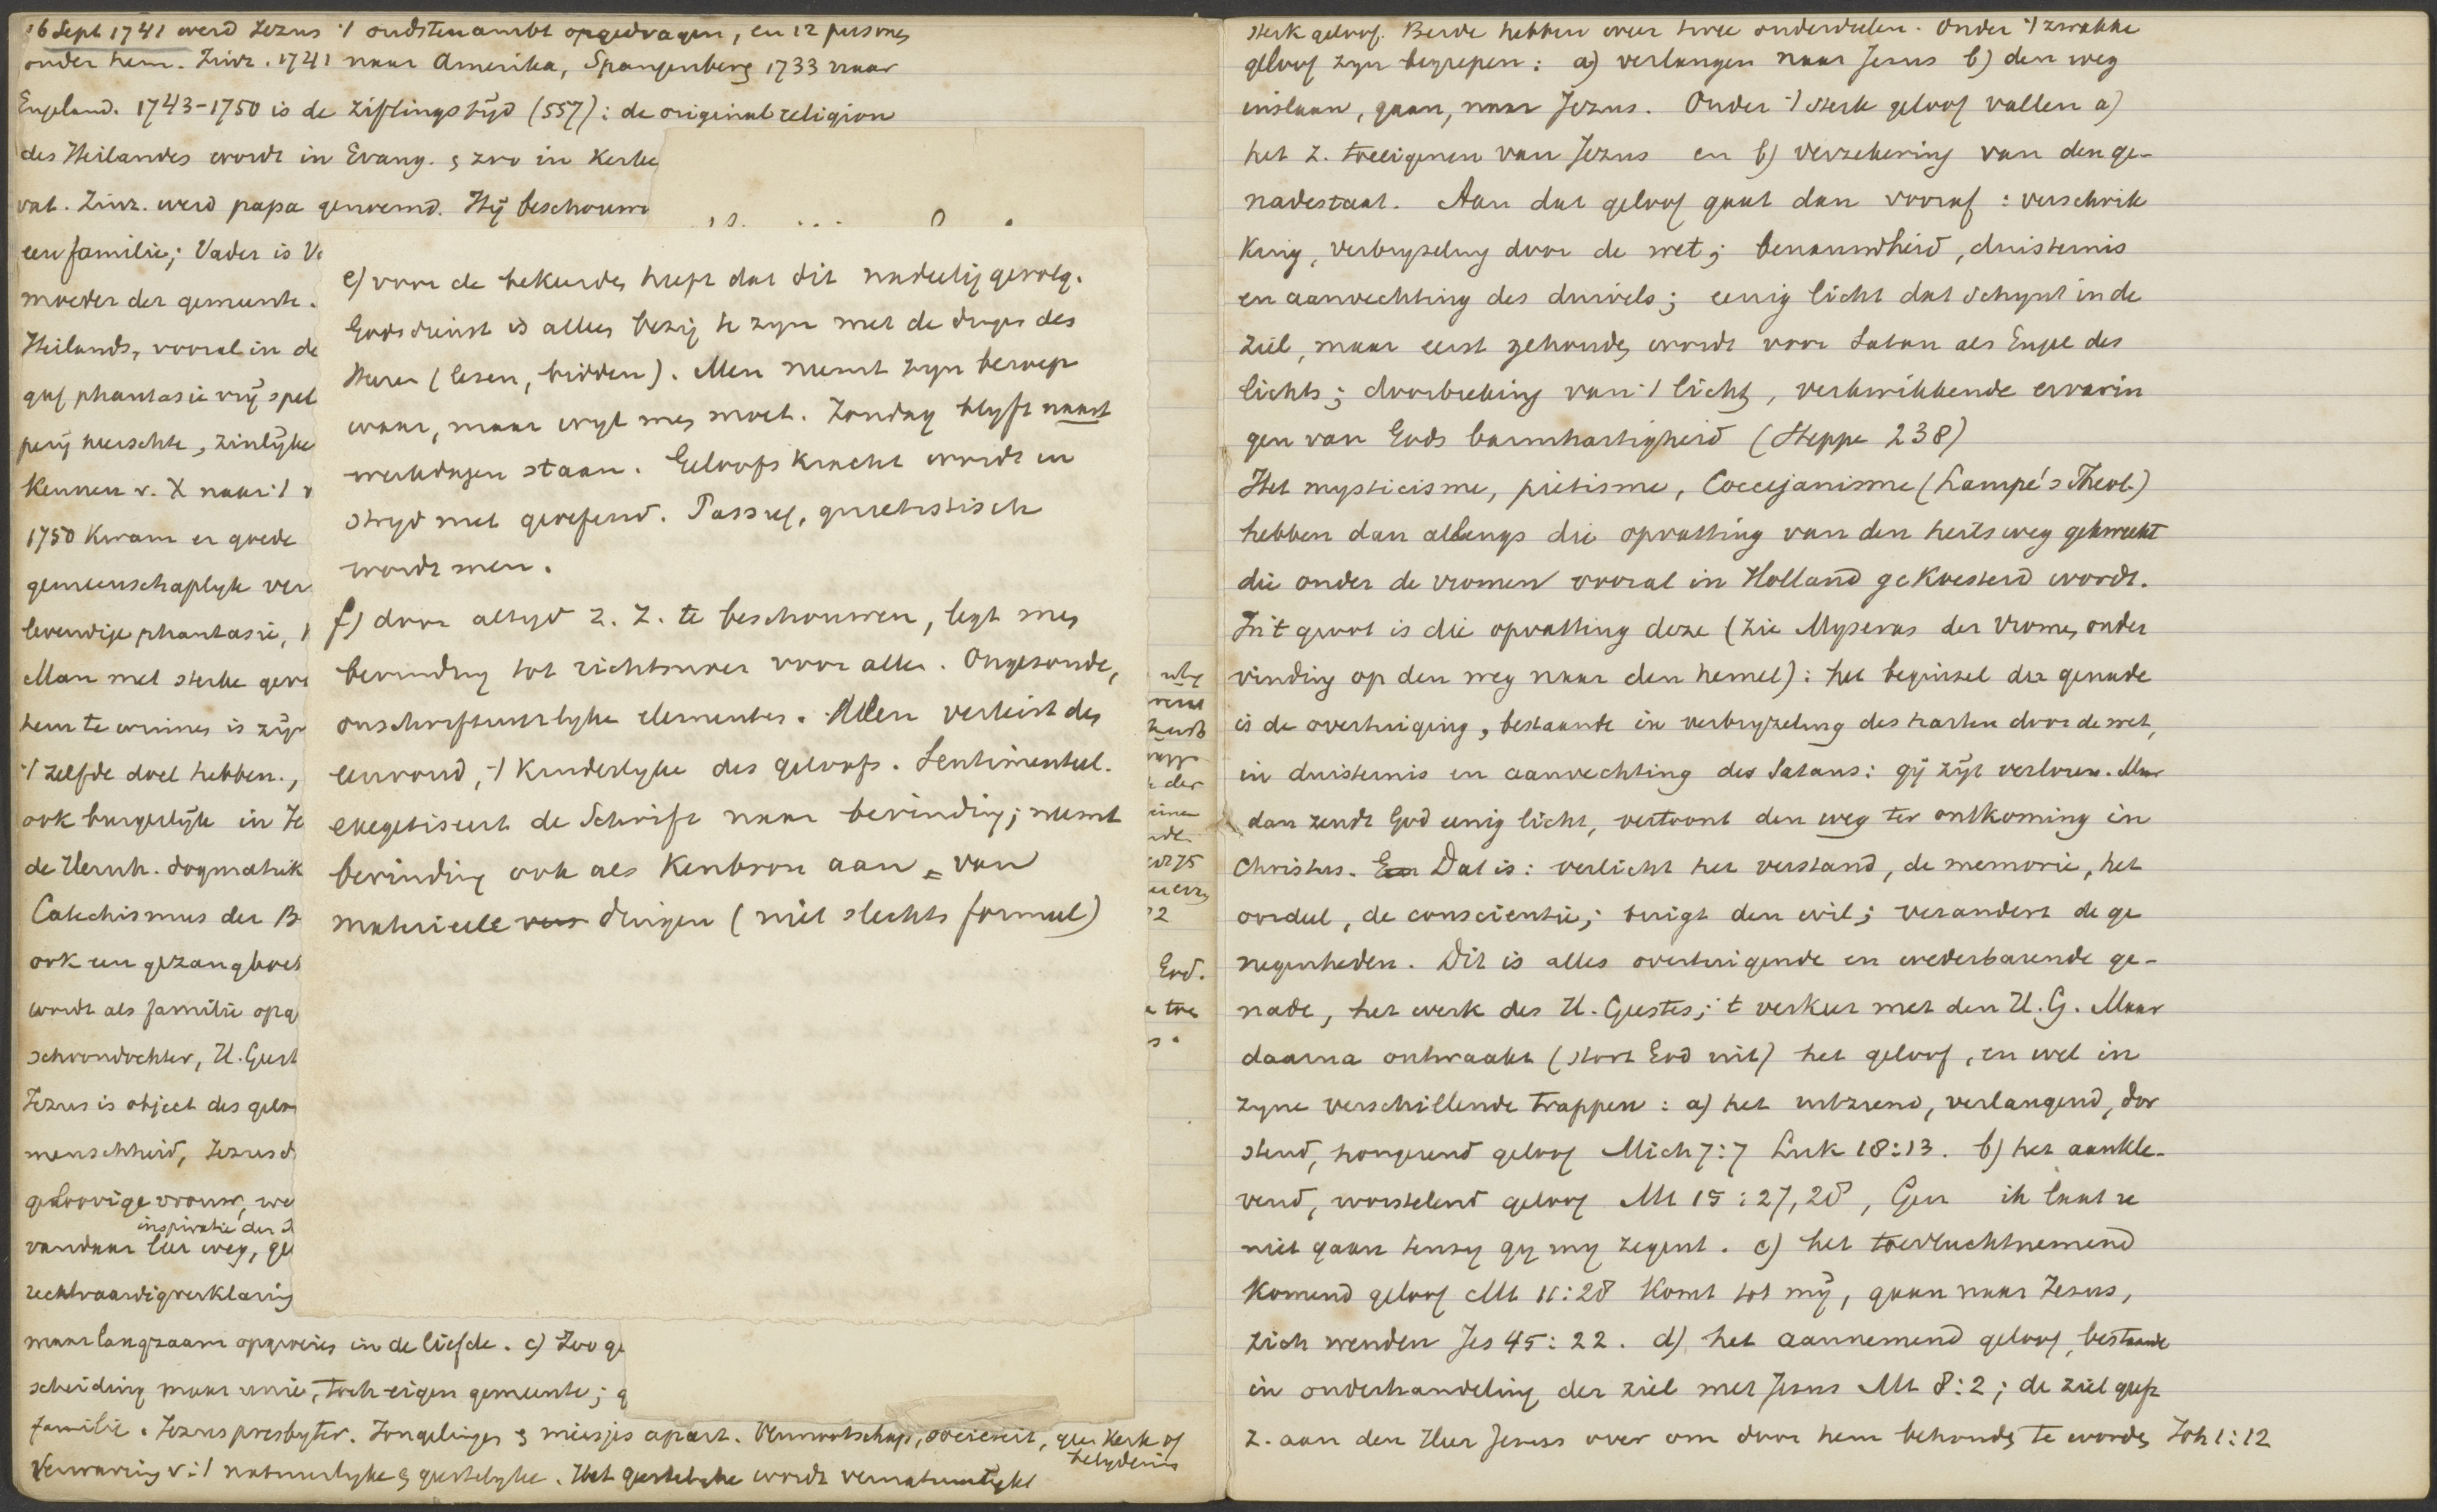 16 Sept 1741 werd Jezus 't oudstenambt opgedragen, en 12 personen
onder hem. Zinz. 1741 naar Amerika, Spangenberg 1733 naar
Engeland. 1743-1750 is de ziftingstijd (557): de original religion
des Heilandes wordt in Evang. & zoo in Kerke
vat. Zinz. werd papa genoemd. Hij beschouw
een familie; Vader is V
moeder der gemeente.
Heilands, vooral in de
gaf phantasie vrij spel
perij heerschte, zinlijke
Kennen v. X naar 't
1750 Kwam er goede
gemeenschaplyke ver
levendige phantasie,
Man met sterke gev
hem te winnen is zijn
't zelfde doel hebben.,
ook burgerlijk in
de Hernh. dogmatiek
Catechismus der B
ook een gezangboek
wordt als familie opg
schoondochter, H. Geest
Jezus is object des gelo
menschheid, Jezus d
geloovige vrouw, we
inspiratie der
vandaar leer weg, ge
rechtvaardigverklaring
maar langzaam opgroeien in de liefde. c) Zoo ge
scheiding maar unie, toch eigen gemeente; g
familie. Jezus presbyter. Jongelingen & meisjes apart. Vennootschap, societeit, geen Kerk of
belydenis
Verwarring v. 't natuurlyke & geestelyke. Het geestelyke wordt vernatuurlykt
e) voor de bekeerden heeft dat dit nadeelig gevolg.
Godsdienst is alleen bezig te zyn met de dingen des
Heeren (lezen, bidden). Men neemt zyn beroep
waar, maar wyl men moet. Zondag blyft naast
werkdagen staan. Geloofskracht wordt in
stryd niet geoefend. Passief, quietistisch
wordt men.
f) door altyd z. Z. te beschouwen, legt men
bevinding tot richtsnoer voor allen. Ongezonde,
onschriftuurlyke elementen. Allen verkeerd den
eenvoud, 't Kinderlyke des geloofs. Sentimenteel.
exegetiseert de Schrift naar bevinding; neemt
bevinding ook als Kenbron aan = van
materieele dingen (niet slechts formeel)
sterk geloof. Beide hebben weer twee onderdeelen. Onder 't zwakke
geloof zyn begrepen: a) verlangen naar Jezus b) den weg
inslaan, gaan, naar Jezus. Onder 't sterk geloof vallen a)
het z. toeeigenen van Jezus en b) verzekering van den ge-
nadestaat. Aan dat geloof gaat dan vooraf: verschrik
King, verbryzeling door de wet; benauwdheid, duisternis
en aanvechting des duivels; eenig licht dat schynt in de
ziel, maar eerst gehouden wordt voor Satan als Engel des
lichts; doorbreking van 't licht, verkwikkende ervarin
gen van Gods barmhartigheid (Heppe 238)
Het mysticisme, piëtisme, Coccejanisme (Lampe's Theol.)
hebben dan allengs die opvatting van den heilsweg gekweekt
die onder de vromen vooral in Holland geKoesterd wordt.
In 't groot is die opvatting deze (zie Myseras der Vromen onder
vinding op den weg naar den hemel): het beginsel der genade
is de overtuiging, bestaande in verbryzeling des harten door de wet,
in duisternis en aanvechting des Satans: gij zijt verloren. Maar
dan zendt God eenig licht, vertoont den weg ter ontkoming in
Christus. Dat is: verlicht het verstand, de memorie, het
oordeel, de conscientie; buigt den wil; verandert de ge
negenheden. Dit is alles overtuigende en wederbarende ge-
nade, het werk des H. Geestes; 't verkeer met den H. G. Maar
daarna ontwaakt (stort God uit) het geloof, en wel in
zyne verschillende trappen: a) het uitziend, verlangend, dor
stend, hongerend geloof Mich 7:7 Luk 18:13. b) het aankle-
vend, worstelend geloof Mt 15:27,28, Gen ik laat u
niet gaan tenzy gy my zegent. c) het toevluchtnemend
Komend geloof Mt 11:28 Komt tot mij, gaan naar Jezus,
zich wenden Jes 45:22. d) het aannemend geloof, bestaande
in onderhandeling der ziel met Jezus Mt 8:2; de ziel geeft
z. aan den Heer Jezus over om door hem behouden te worden Joh 1:12